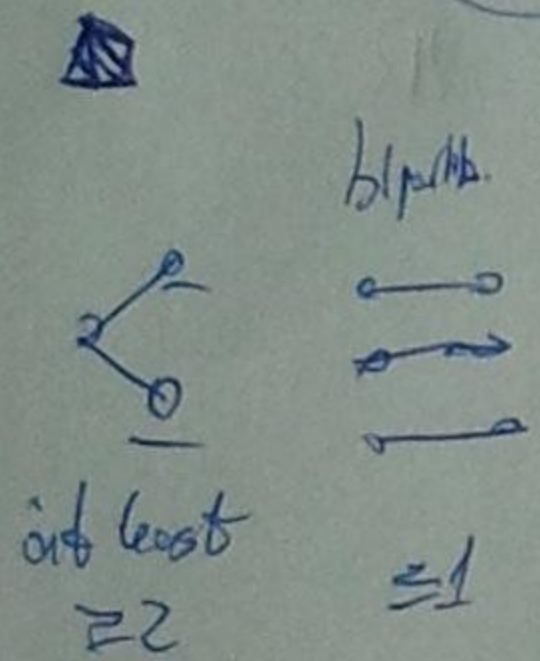 bipartite.
at least
≥2
≤1